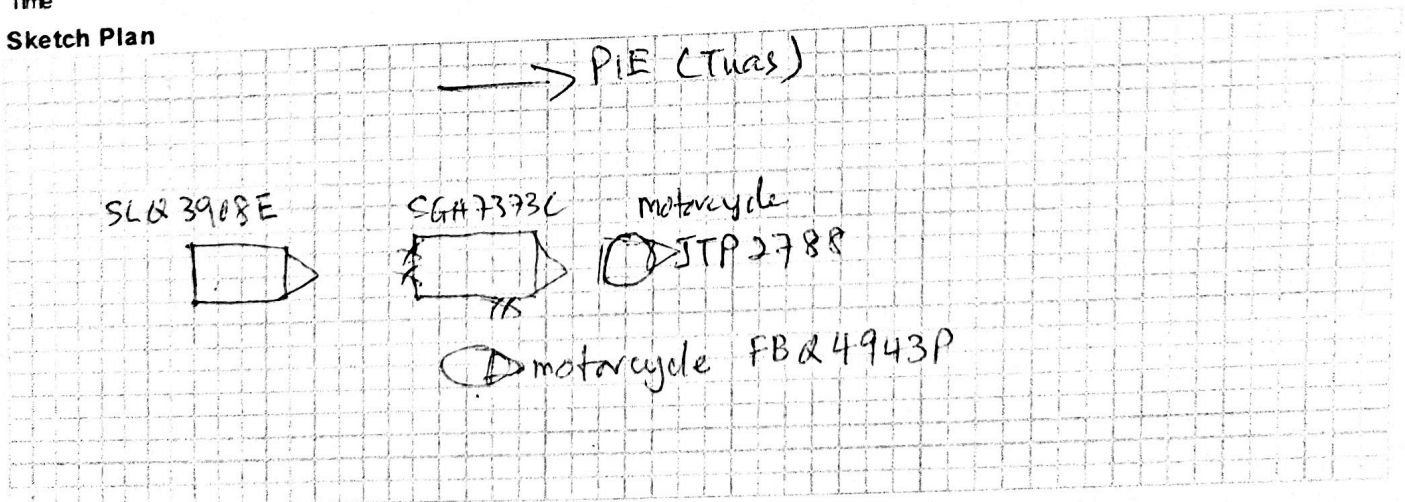 Time
Sketch Plan
PIE (Tuas)
SLQ 3908E
SGH7373C
motorcycle
JTP 2788
motorcycle FBQ4943P